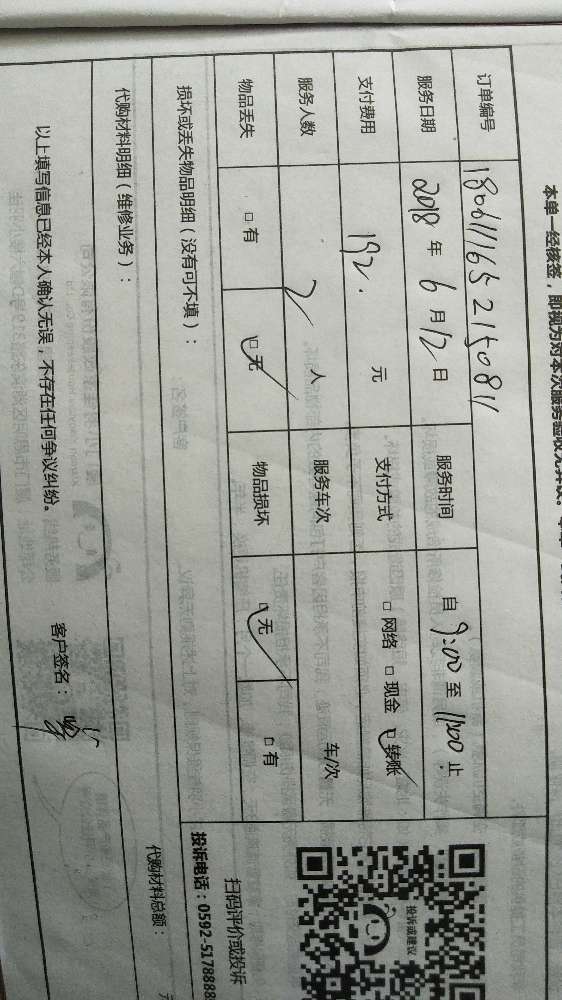 本单一经核签，即视为对本次服务验收无异议。
订单编号 180611165215081
服务日期 2018 年 6 月 12 日 服务时间 自 9:00 至 11:00 止
支付费用 192. 元 支付方式 □ 网络 □ 现金 ☑ 转账
服务人数 2 人 服务车次 车/次
物品丢失 □ 有 ☑ 无 物品损坏 ☑ 无 □ 有
损坏或丢失物品明细（没有可不填）：
代购材料明细（维修业务）：
代购材料总额：
以上填写信息已经本人确认无误，不存在任何争议纠纷。 客户签名：
投诉或建议
扫码评价或投诉
投诉电话：0592-5178888